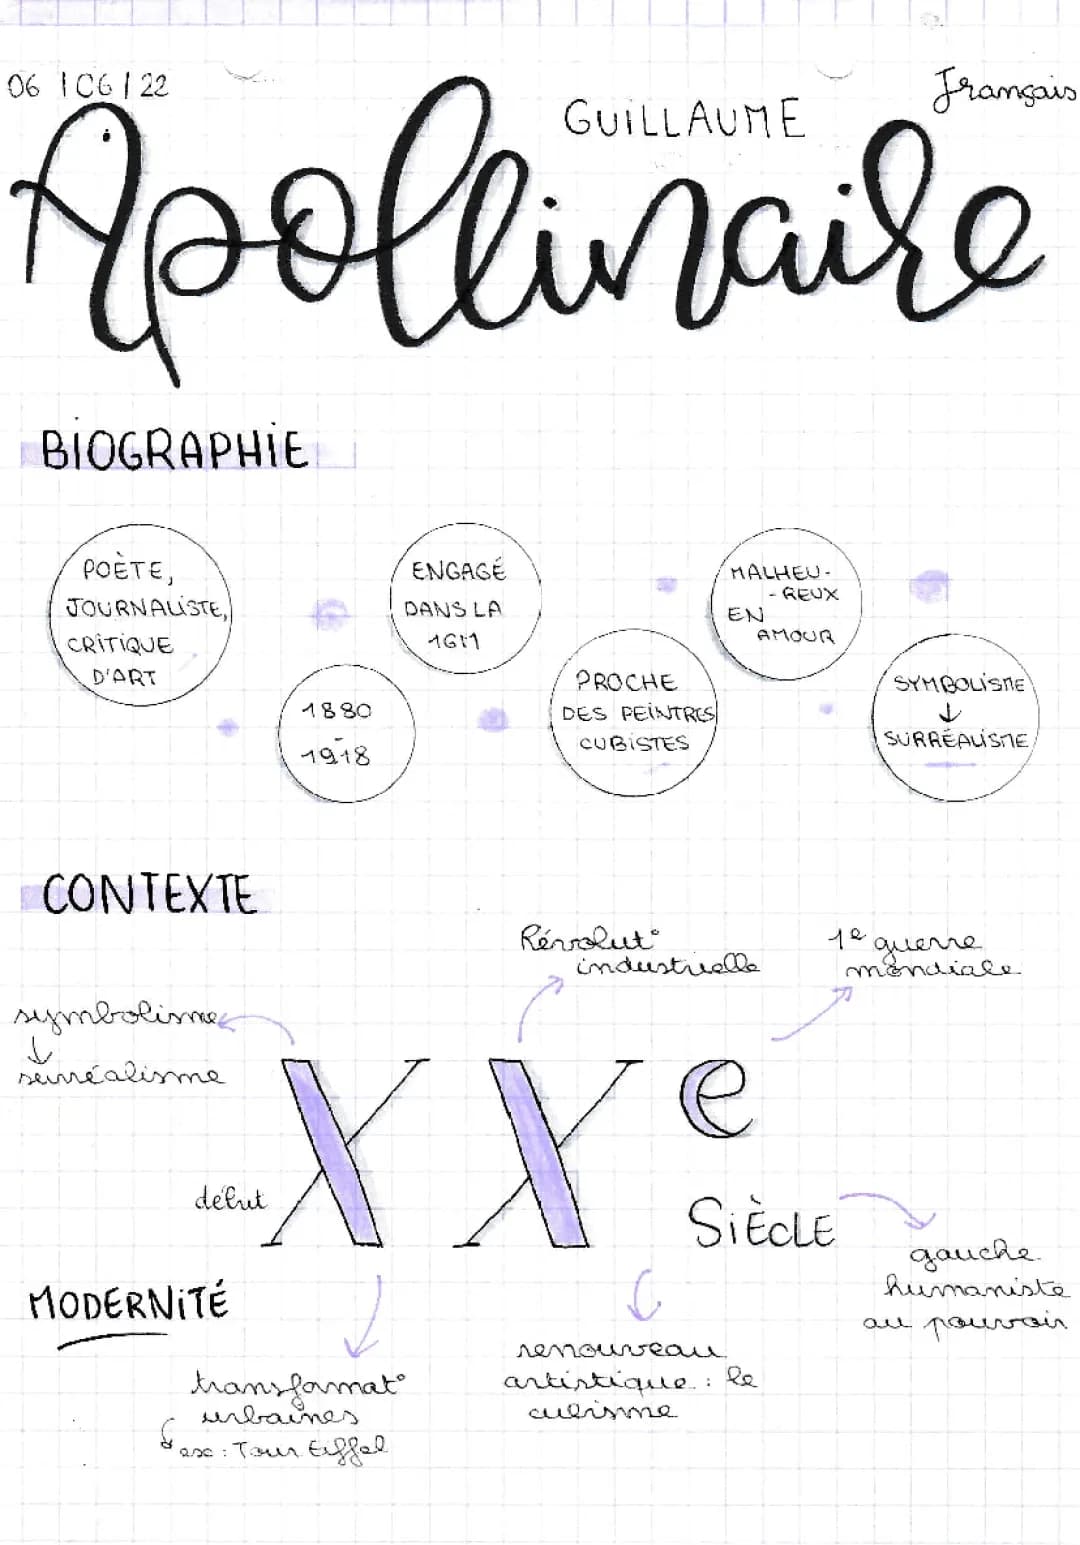 06 / 06 / 22
Français
GUILLAUME
Apollinaire
BIOGRAPHIE
POÈTE,
JOURNALISTE,
CRITIQUE
D'ART
1880
-
1918
ENGAGÉ
DANS LA
1GM
PROCHE
DES PEINTRES
CUBISTES
MALHEU-
-REUX
EN
AMOUR
SYMBOLISME
↓
SURRÉALISME
CONTEXTE
Révolut°
industrielle
1e guerre
mondiale
symbolisme
↓
surréalisme
début
XXe
SIÈCLE
gauche
humaniste
au pouvoir
MODERNITÉ
transformat°
urbaines
ex : Tour Eiffel
renouveau
artistique : le
cubisme